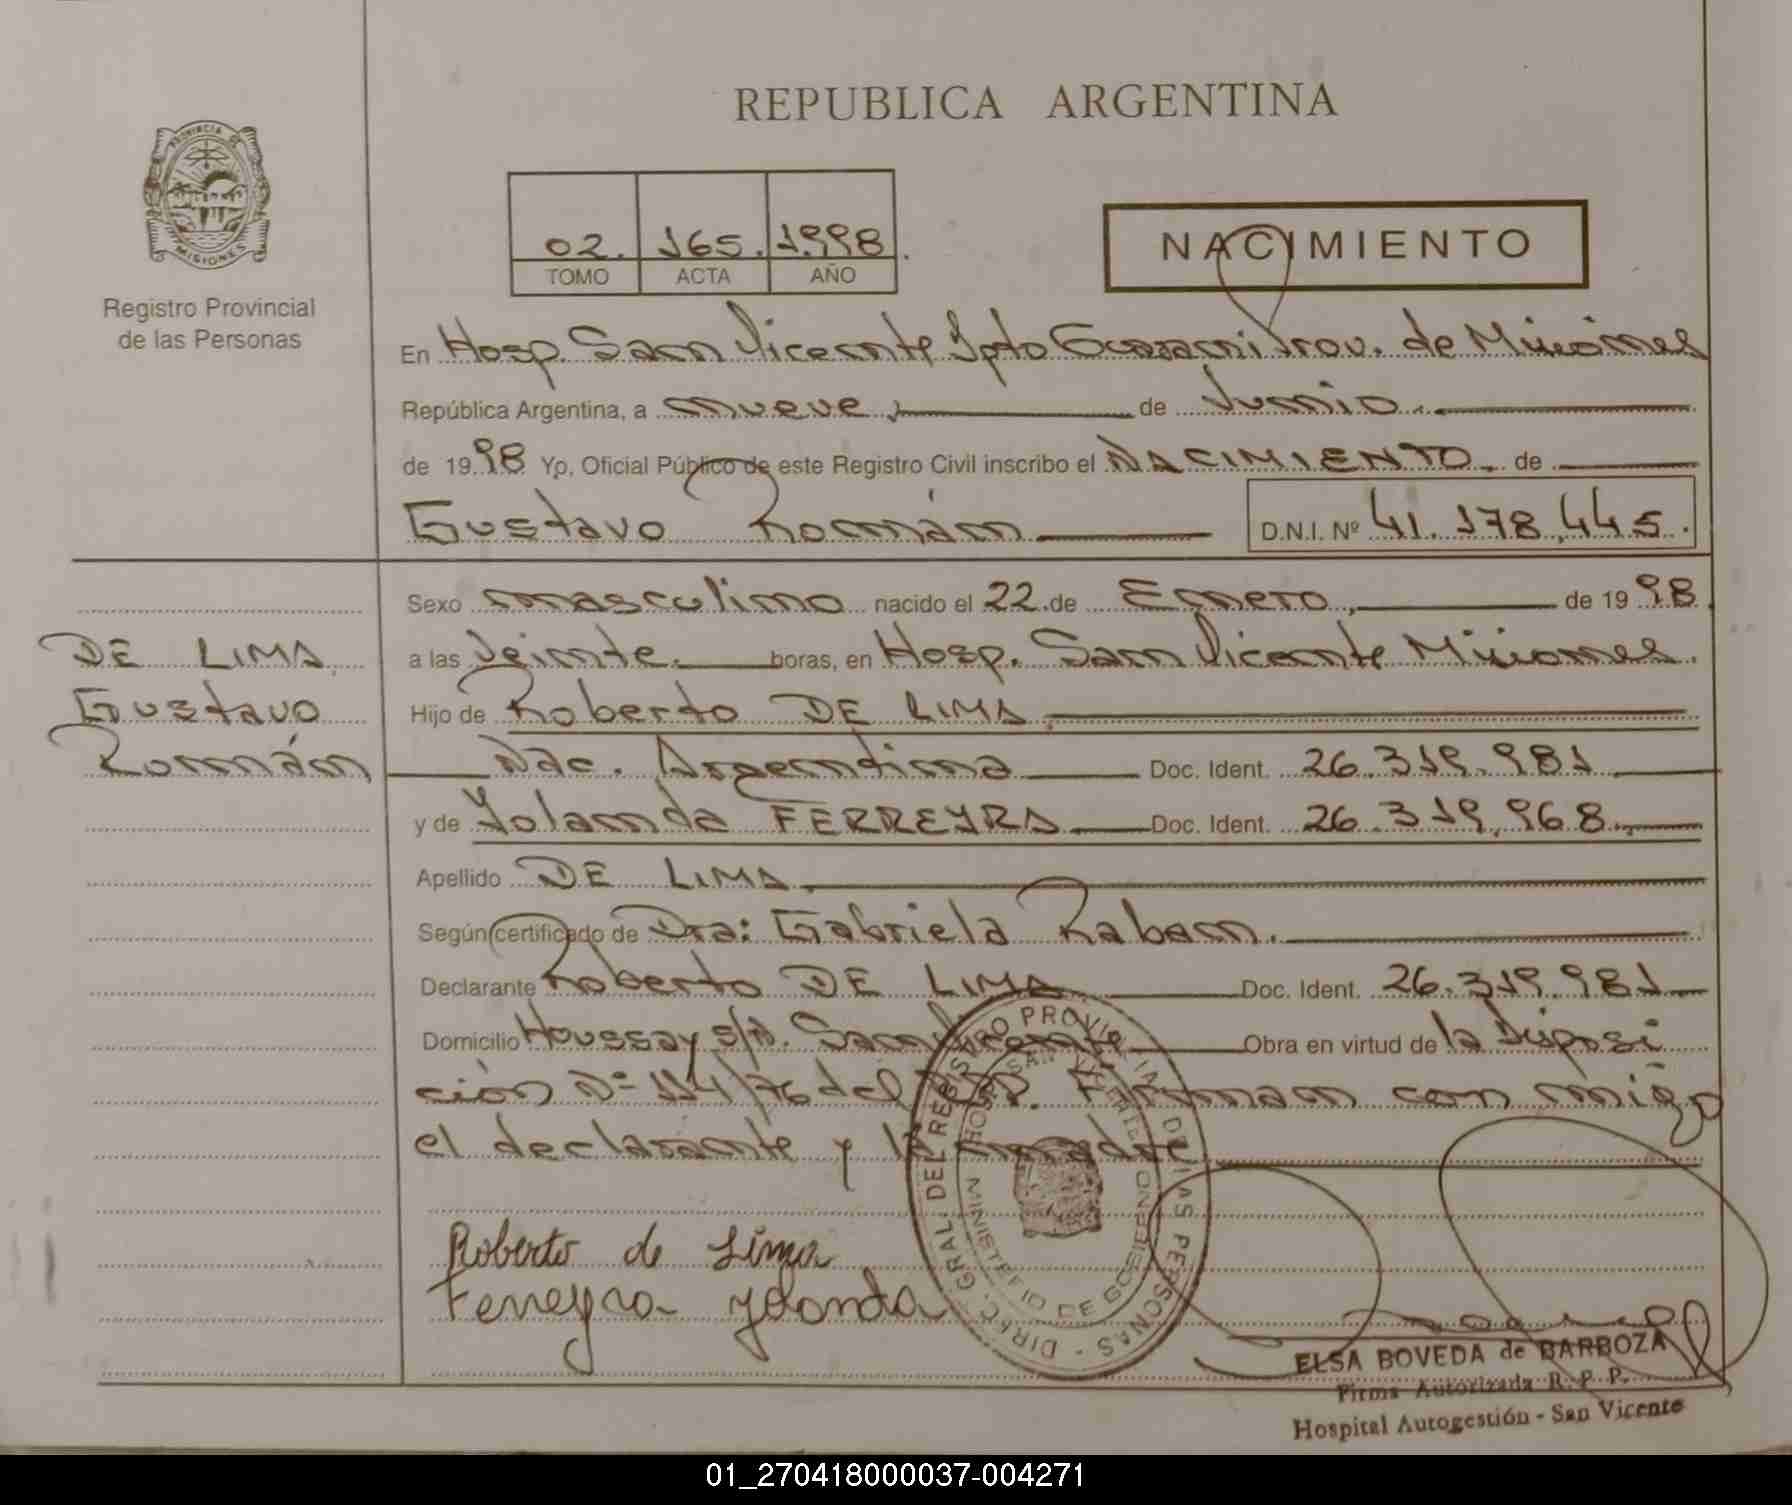 REPUBLICA ARGENTINA
PROVINCIA DE MISIONES
Registro Provincial
de las Personas
02. 165. 1998.
TOMO ACTA AÑO
NACIMIENTO
En Hosp. San Vicente Dpto Guaraní Prov. de Misiones
República Argentina, a nueve, de Junio.
de 1998 Yo, Oficial Público de este Registro Civil inscribo el NACIMIENTO. de
Gustavo Román D.N.I. Nº 41.178.445.
Sexo masculino nacido el 22 de Enero, de 1998.
DE LIMA
Gustavo
Román
a las veinte. horas, en Hosp. San Vicente Misiones.
Hijo de Roberto DE LIMA.
Nac. Argentina Doc. Ident. 26.319.981
y de Yolanda FERREYRA Doc. Ident. 26.319.968.
Apellido DE LIMA.
Según certificado de Dra: Gabriela Raban.
Declarante Roberto DE LIMA Doc. Ident. 26.319.981
Domicilio Houssay s/n. San Vicente Obra en virtud de la Disposi
ción Nº 114/76 del RPP. Firman con migo
el declarante y la madre
Roberto de Lima
Ferreyra Yolanda
DIREC. GRAL. DEL REGISTRO PROVINCIAL DE LAS PERSONAS -
MINISTERIO DE GOBIERNO
HOSP. SAN VICENTE
ELSA BOVEDA de BARBOZA
Firma Autorizada R. P. P.
Hospital Autogestión - San Vicente
01_270418000037-004271